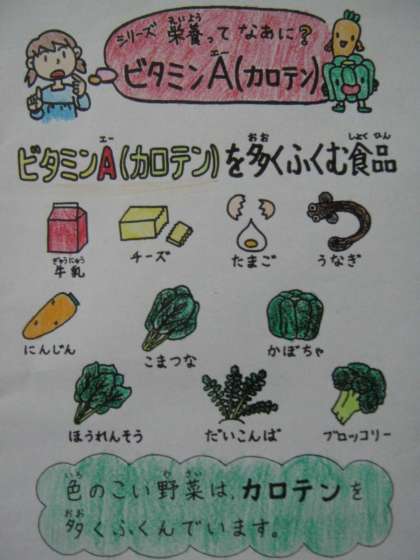 シリーズ 栄養ってなあに?
えいよう
ビタミンA(カロテン)
エー
ビタミンA(カロテン)を多くふくむ食品
エー おお しょくひん
牛乳 チーズ たまご うなぎ
ぎゅうにゅう
にんじん こまつな かぼちゃ
ほうれんそう だいこんば ブロッコリー
色のこい野菜は、カロテンを
いろ やさい
多くふくんでいます。
おお